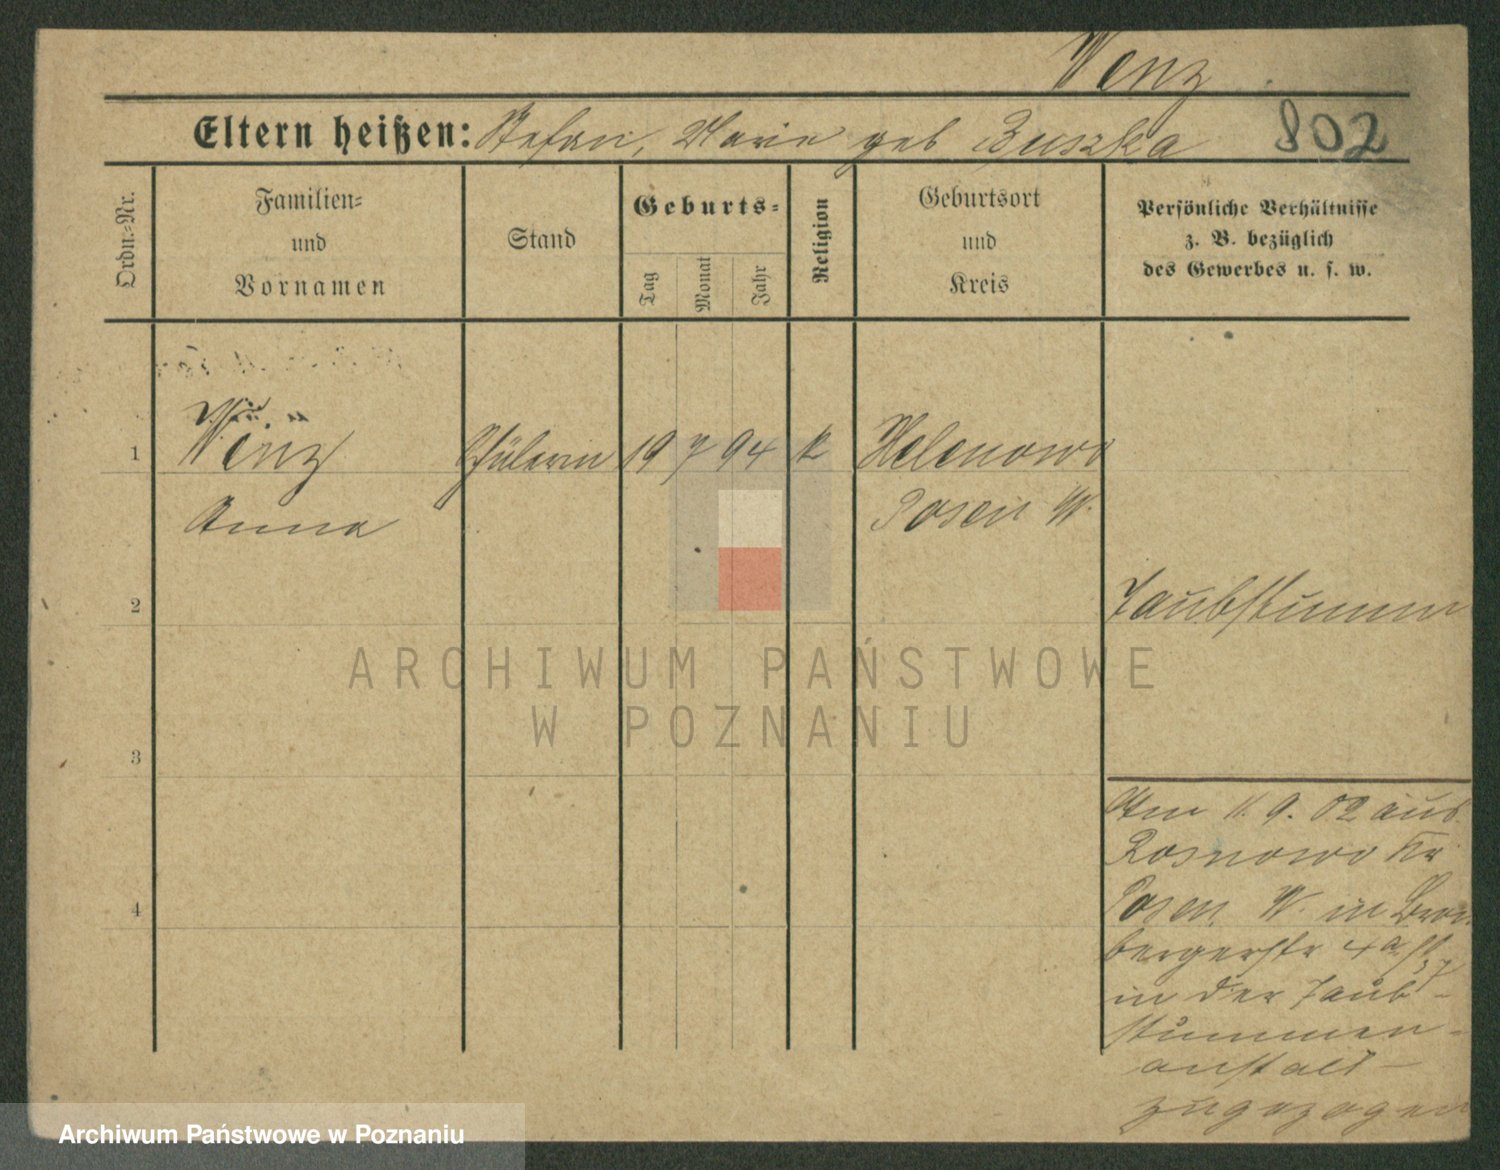 Wenz
Eltern heißen: Stefan, Marie geb Buszka 802
Ordn.-Nr.
Familien-
und
Vornamen
Stand
Geburts-
Tag
Monat
Jahr
Religion
Geburtsort
und
Kreis
Persönliche Verhältnisse
z. B. bezüglich
des Gewerbes u. s. w.
1 Wenz Schülerin 19 7 94 k Helenowo
Anna Posen W.
2 Taubstumm
3
Am 11. 9. 02 aus
Rosnowo Kr
Posen W. in Brom
4
bergerstr 4a
in der Taub-
stummen-
anstalt
zugezogen
ARCHIWUM PAŃSTWOWE
W POZNANIU
Archiwum Państwowe w Poznaniu